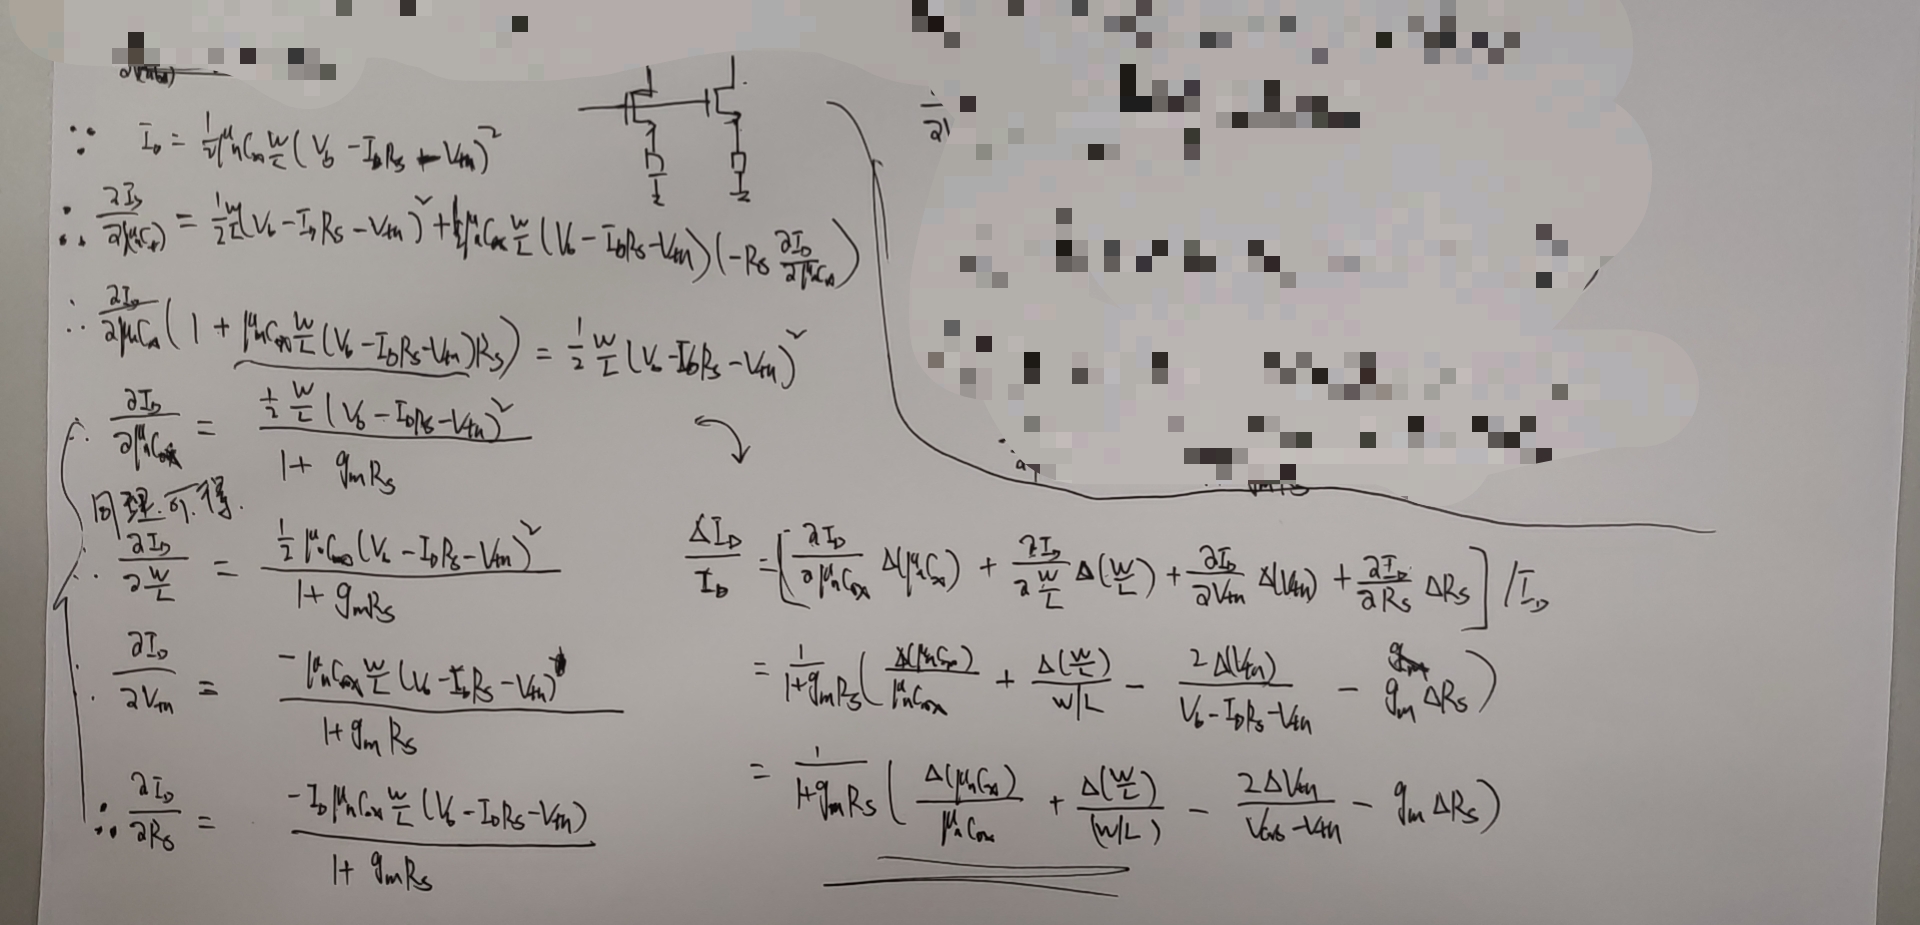 ∵ I_D = 1/2 μnCox W/L (Vb - I_D Rs - Vtn)²
∴ ∂I_D/∂(μnCox) = 1/2 W/L (Vb - I_D Rs - Vtn)² + μnCox W/L (Vb - I_D Rs - Vtn)(-Rs ∂I_D/∂μnCox)
∴ ∂I_D/∂μnCox (1 + μnCox W/L (Vb - I_D Rs - Vtn)Rs) = 1/2 W/L (Vb - I_D Rs - Vtn)²
∴ ∂I_D/∂μnCox = 1/2 W/L (Vb - I_D Rs - Vtn)² / (1 + gmRs)
同理可得.
∴ ∂I_D/∂(W/L) = 1/2 μnCox (Vb - I_D Rs - Vtn)² / (1 + gmRs)
∴ ∂I_D/∂Vtn = -μnCox W/L (Vb - I_D Rs - Vtn) / (1 + gmRs)
∴ ∂I_D/∂Rs = -I_D μnCox W/L (Vb - I_D Rs - Vtn) / (1 + gmRs)
ΔI_D/I_D = [∂I_D/∂μnCox Δ(μnCox) + ∂I_D/∂(W/L) Δ(W/L) + ∂I_D/∂Vtn Δ(Vtn) + ∂I_D/∂Rs ΔRs] / I_D
= 1/(1+gmRs) (Δ(μnCox)/μnCox + Δ(W/L)/(W/L) - 2Δ(Vtn)/(Vb - I_D Rs - Vtn) - gm ΔRs)
= 1/(1+gmRs) (Δ(μnCox)/μnCox + Δ(W/L)/(W/L) - 2ΔVtn/(VGS - Vtn) - gm ΔRs)